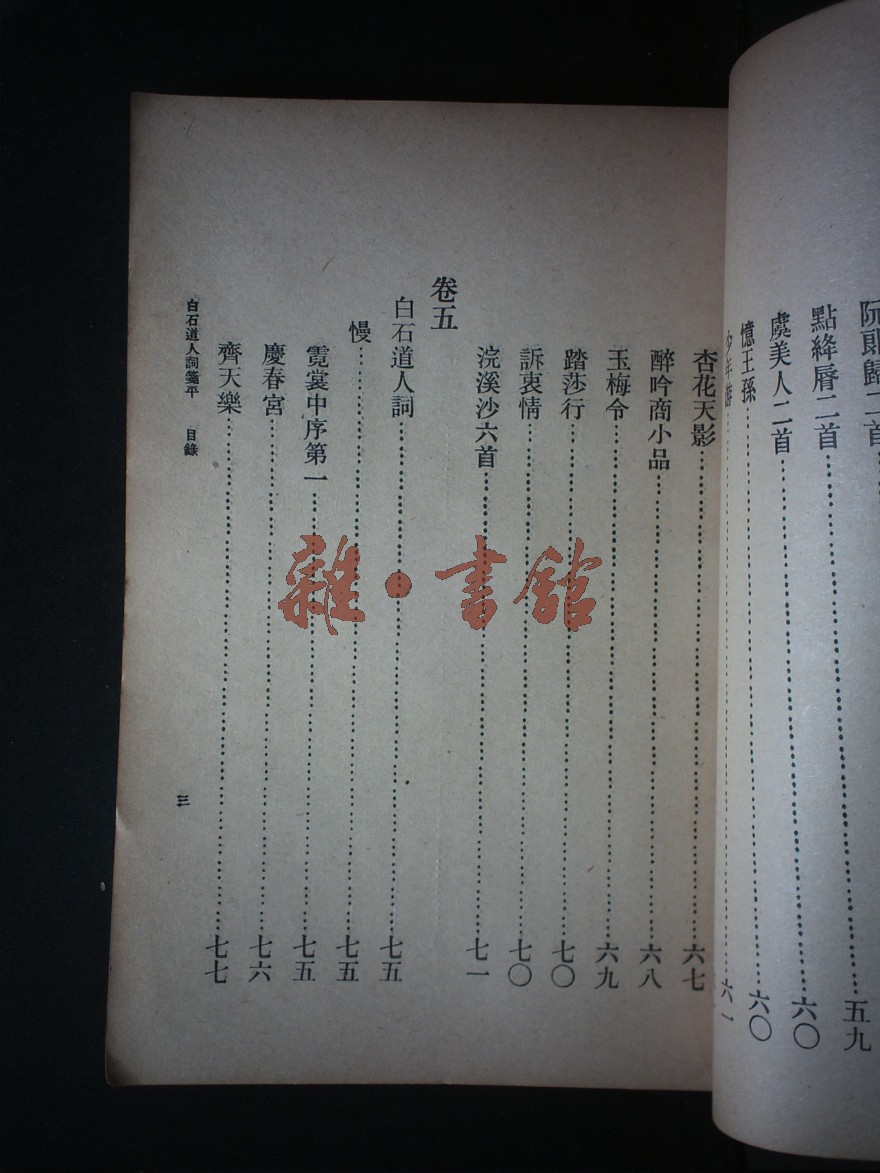 阮郎歸二首……五九
點絳脣二首……六〇
虞美人二首……六〇
憶王孫……六〇
少年游……六一
杏花天影……六七
醉吟商小品……六八
玉梅令……六九
踏莎行……七〇
訴衷情……七〇
浣溪沙六首……七一
卷五
白石道人詞……七五
慢……七五
霓裳中序第一……七五
慶春宮……七六
齊天樂……七七
白石道人詞箋平 目錄
三
雜·書館